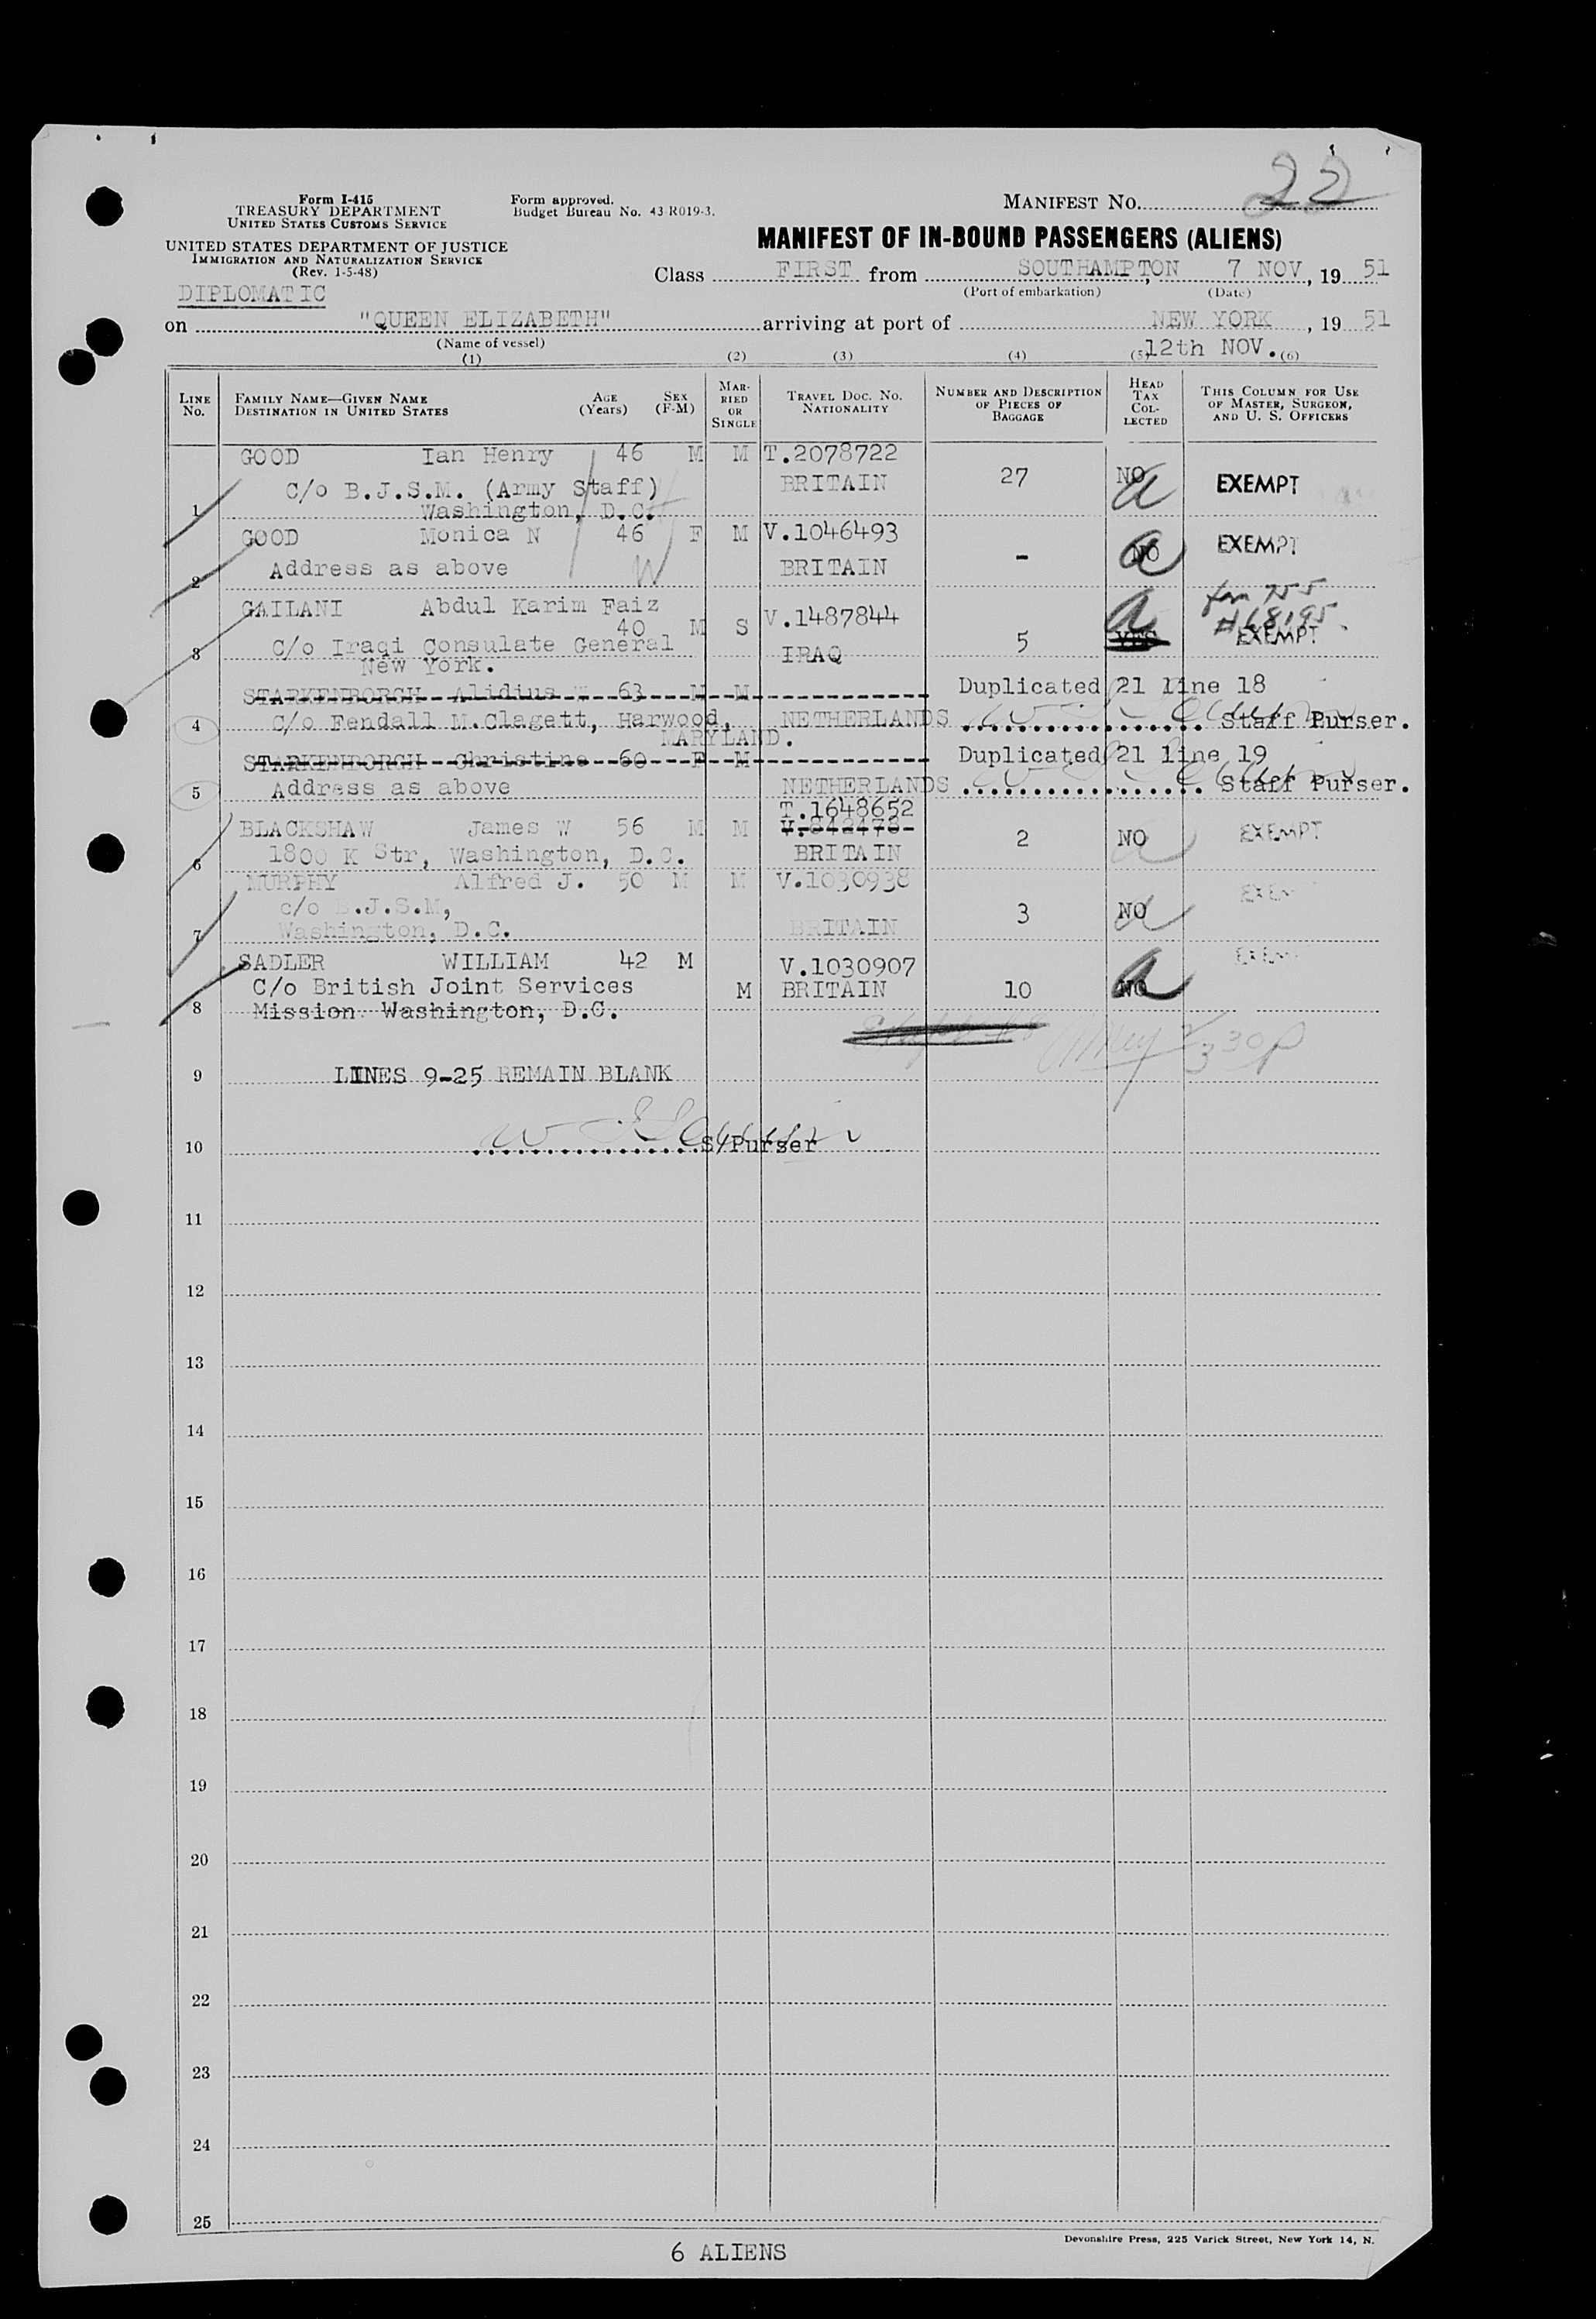 22
Form I-415
TREASURY DEPARTMENT
UNITED STATES CUSTOMS SERVICE
Form approved.
Budget Bureau No. 43 R019-3.
MANIFEST NO.
UNITED STATES DEPARTMENT OF JUSTICE
IMMIGRATION AND NATURALIZATION SERVICE
(Rev. 1-5-48)
MANIFEST OF IN-BOUND PASSENGERS (ALIENS)
DIPLOMATIC
Class FIRST from SOUTHAMPTON, 7 NOV, 19 51
(Port of embarkation) (Date)
on "QUEEN ELIZABETH" arriving at port of NEW YORK, 19 51
(Name of vessel) 12th NOV.
(1) (2) (3) (4) (5) (6)
LINE No. FAMILY NAME—GIVEN NAME DESTINATION IN UNITED STATES AGE (Years) SEX (F-M) MARRIED OR SINGLE TRAVEL DOC. NO. NATIONALITY NUMBER AND DESCRIPTION OF PIECES OF BAGGAGE HEAD TAX COLLECTED THIS COLUMN FOR USE OF MASTER, SURGEON, AND U. S. OFFICERS
GOOD Ian Henry 46 M M T.2078722
C/o B.J.S.M. (Army Staff) BRITAIN 27 NO EXEMPT
1 Washington, D.C.
GOOD Monica N 46 F M V.1046493 - NO EXEMPT
2 Address as above BRITAIN
GAILANI Abdul Karim Faiz V.1487844
40 M S 5 YES EXEMPT
3 C/o Iraqi Consulate General IRAQ
New York.
STARKENBORGH Alidius W 63 M M Duplicated 21 line 18
4 C/o Fendall M.Clagett, Harwood, NETHERLANDS Staff Purser.
MARYLAND.
STARKENBORGH Christine 60 F M Duplicated 21 line 19
5 Address as above NETHERLANDS Staff Purser.
T.1648652
BLACKSHAW James W 56 M M V.842478 2 NO EXEMPT
6 1800 K Str, Washington, D.C. BRITAIN
MURPHY Alfred J. 50 M M V.1030938
c/o B.J.S.M, 3 NO
7 Washington, D.C. BRITAIN
SADLER WILLIAM 42 M V.1030907
C/o British Joint Services M BRITAIN 10 NO
8 Mission Washington, D.C.
330p
9 LINES 9-25 REMAIN BLANK
10 S/Purser
11
12
13
14
15
16
17
18
19
20
21
22
23
24
25
6 ALIENS
Devonshire Press, 225 Varick Street, New York 14, N.